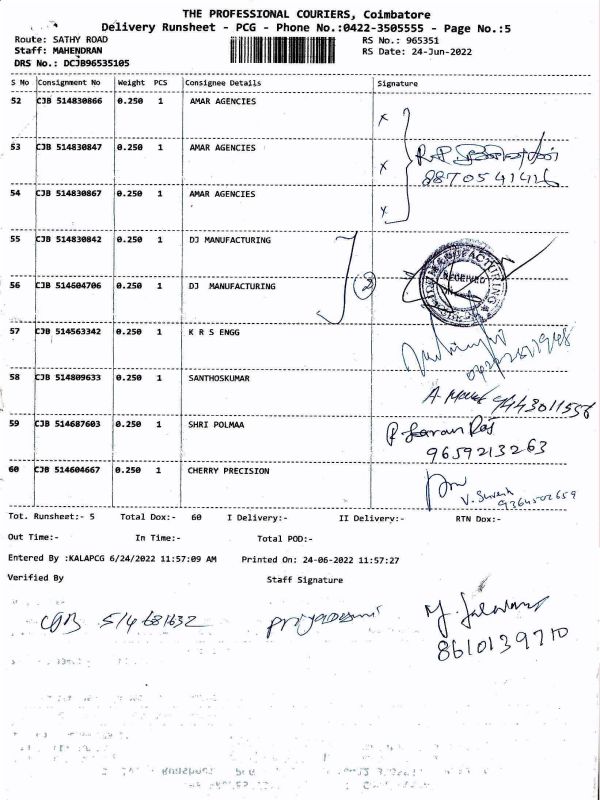 THE PROFESSIONAL COURIERS, Coimbatore
Delivery Runsheet - PCG - Phone No.:0422-3505555 - Page No.:5
Route: SATHY ROAD RS No.: 965351
Staff: MAHENDRAN RS Date: 24-Jun-2022
DRS No.: DCJB96535105
S No Consignment No Weight PCS Consignee Details Signature
52 CJB 514830866 0.250 1 AMAR AGENCIES x
53 CJB 514830847 0.250 1 AMAR AGENCIES x
8870541416
54 CJB 514830867 0.250 1 AMAR AGENCIES x
55 CJB 514830842 0.250 1 DJ MANUFACTURING
RECEIVED
56 CJB 514604706 0.250 1 DJ MANUFACTURING 2
57 CJB 514563342 0.250 1 K R S ENGG
58 CJB 514809633 0.250 1 SANTHOSKUMAR 9443011556
59 CJB 514687603 0.250 1 SHRI POLMAA
9659213263
60 CJB 514604667 0.250 1 CHERRY PRECISION
V. Suresh
9364502659
Tot. Runsheet:- 5 Total Dox:- 60 I Delivery:- II Delivery:- RTN Dox:-
Out Time:- In Time:- Total POD:-
Entered By :KALAPCG 6/24/2022 11:57:09 AM Printed On: 24-06-2022 11:57:27
Verified By Staff Signature
CJB 514681632
8610139710